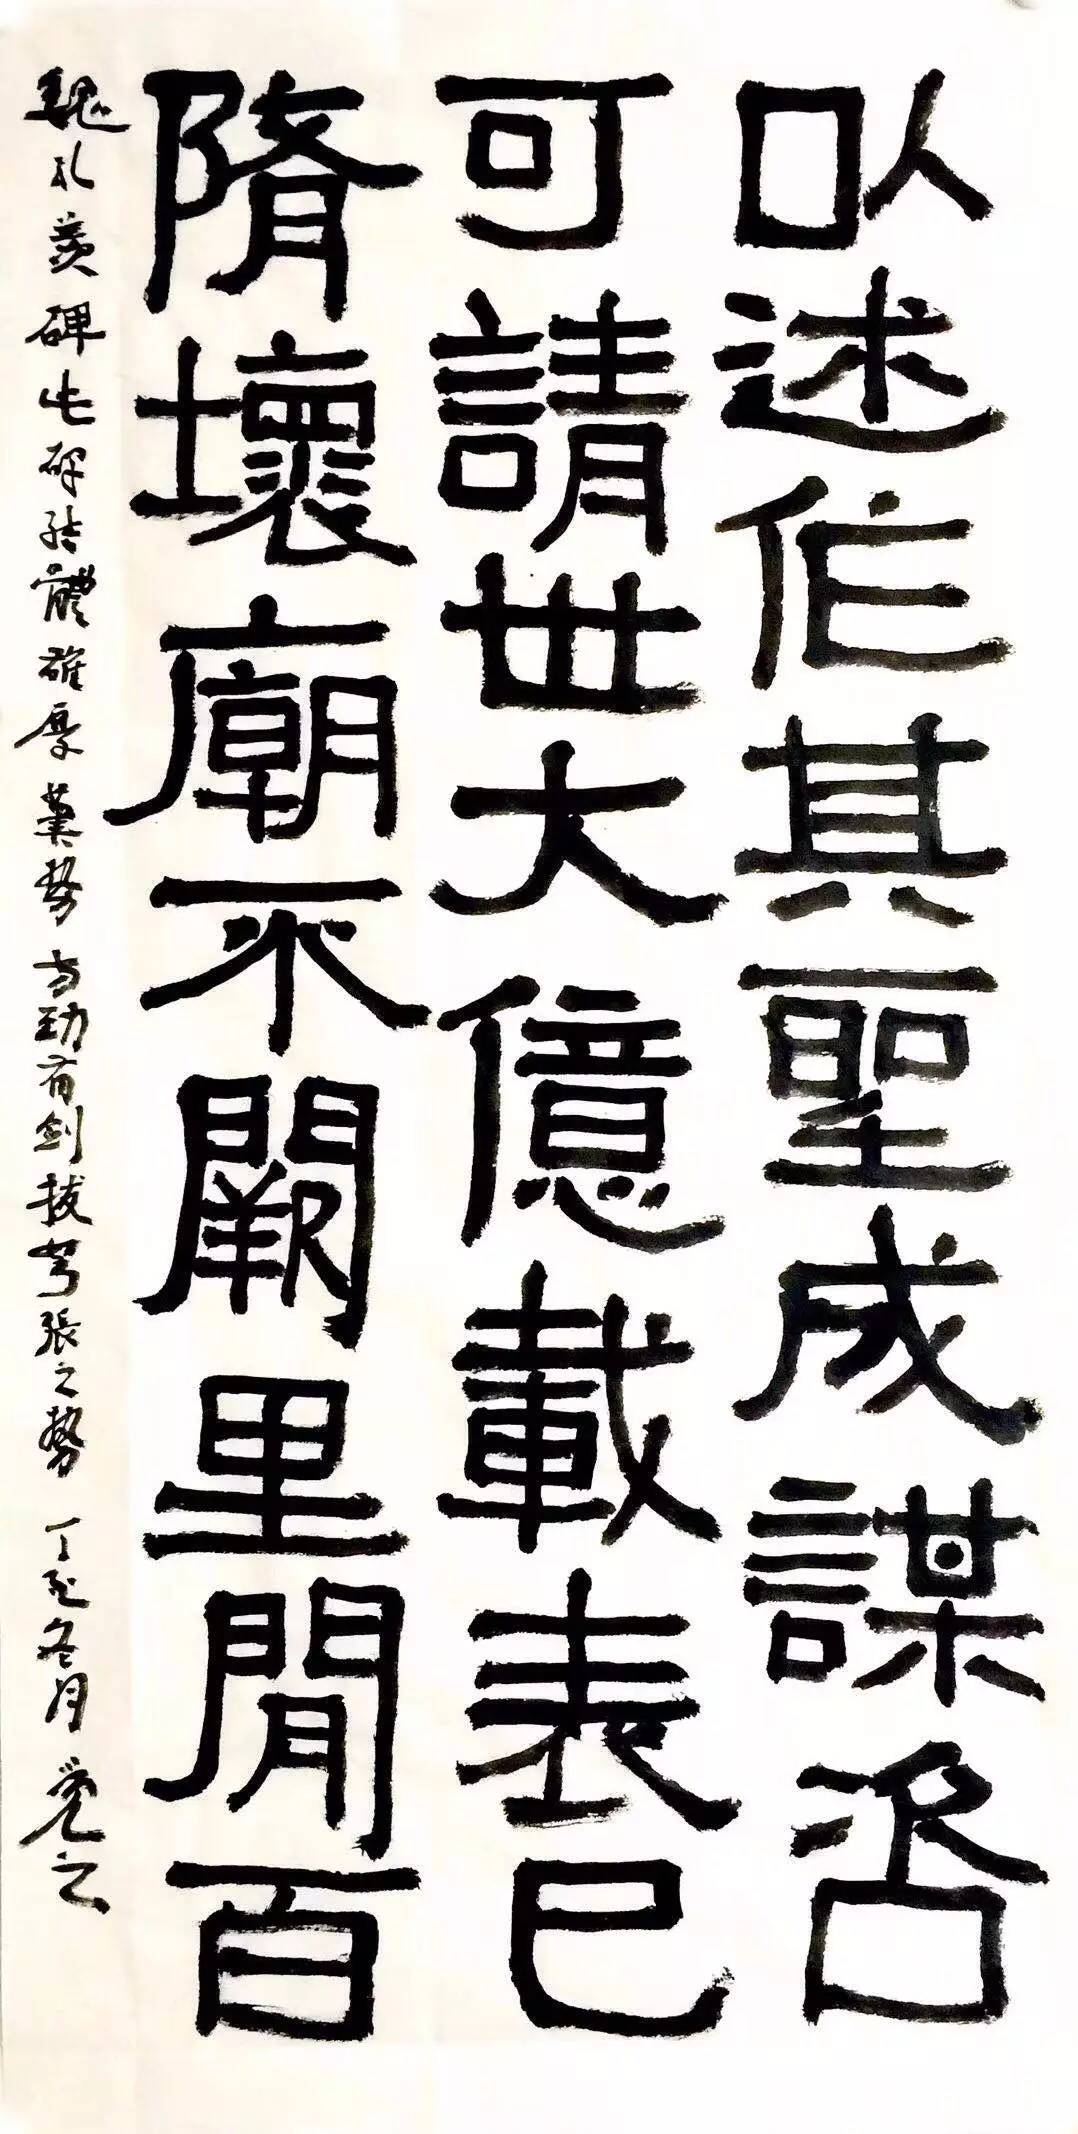 以述作其聖成謀咨
可請卋大億載表巳
隋壞廟不闕里閒百
魏孔羨碑此碑結體雄厚筆勢方勁有劍拔弩張之勢 丁酉冬月 覺之